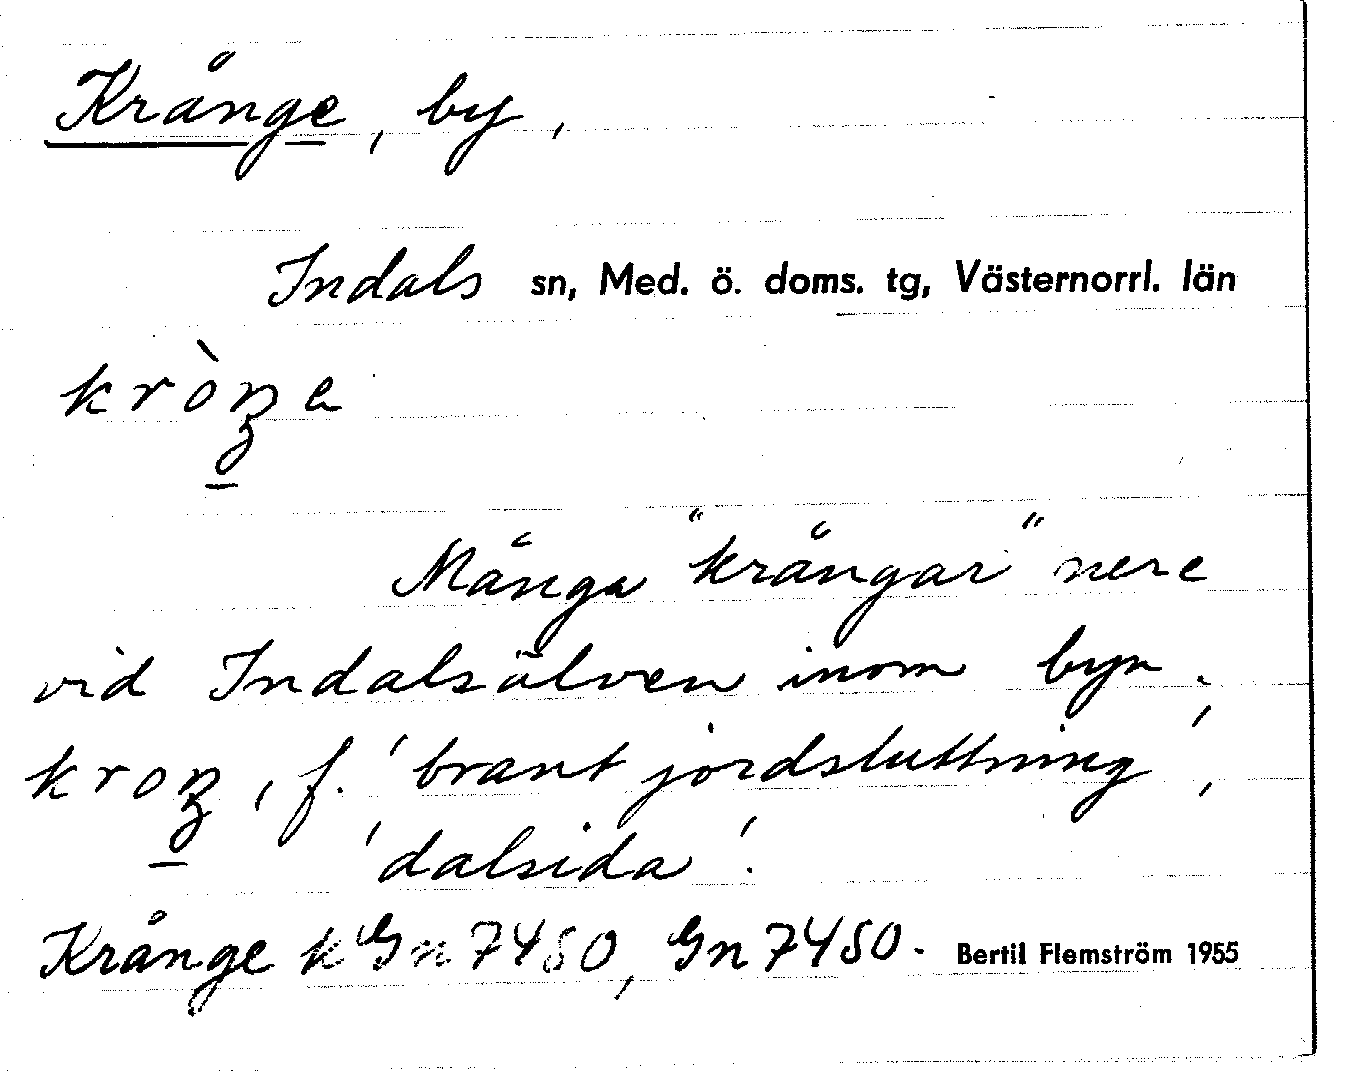 Krånge, by,
Indals sn, Med. ö. doms. tg, Västernorrl. län
kròŋe
Många "krångar" nere
vid Indalsälven inom byn.
kroŋ, f. 'brant jordsluttning',
'dalsida'.
Krånge k Gn 7450, Gn 7450. Bertil Flemström 1955